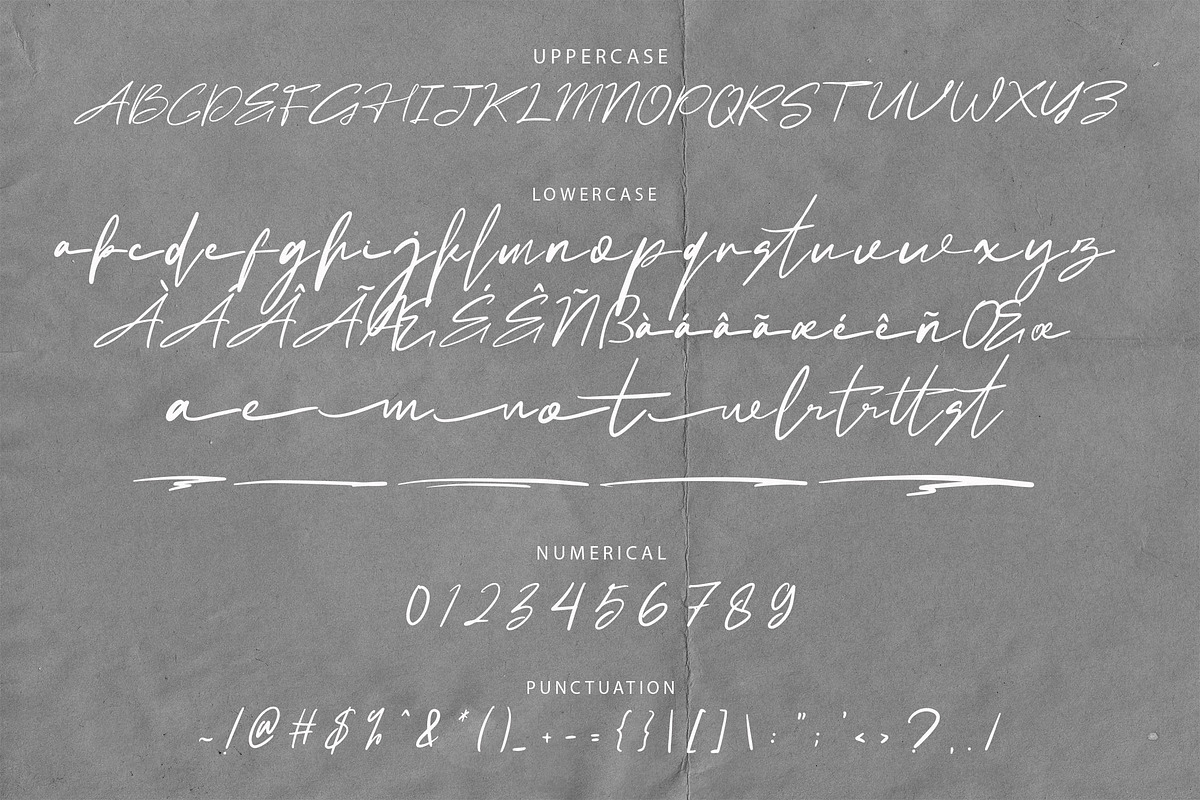 UPPERCASE
ABCDEFGHIJKLMNOPQRSTUVWXYZ
LOWERCASE
abcdefghijklmnopqrstuvwxyz
ÀÁÂÃÆÉÊÑßàáâãæéêñŒœ
a e m n o t u e lrtrttst
NUMERICAL
0123456789
PUNCTUATION
~!@#$%^&*()_+-={}|[]\:";'<>?,./